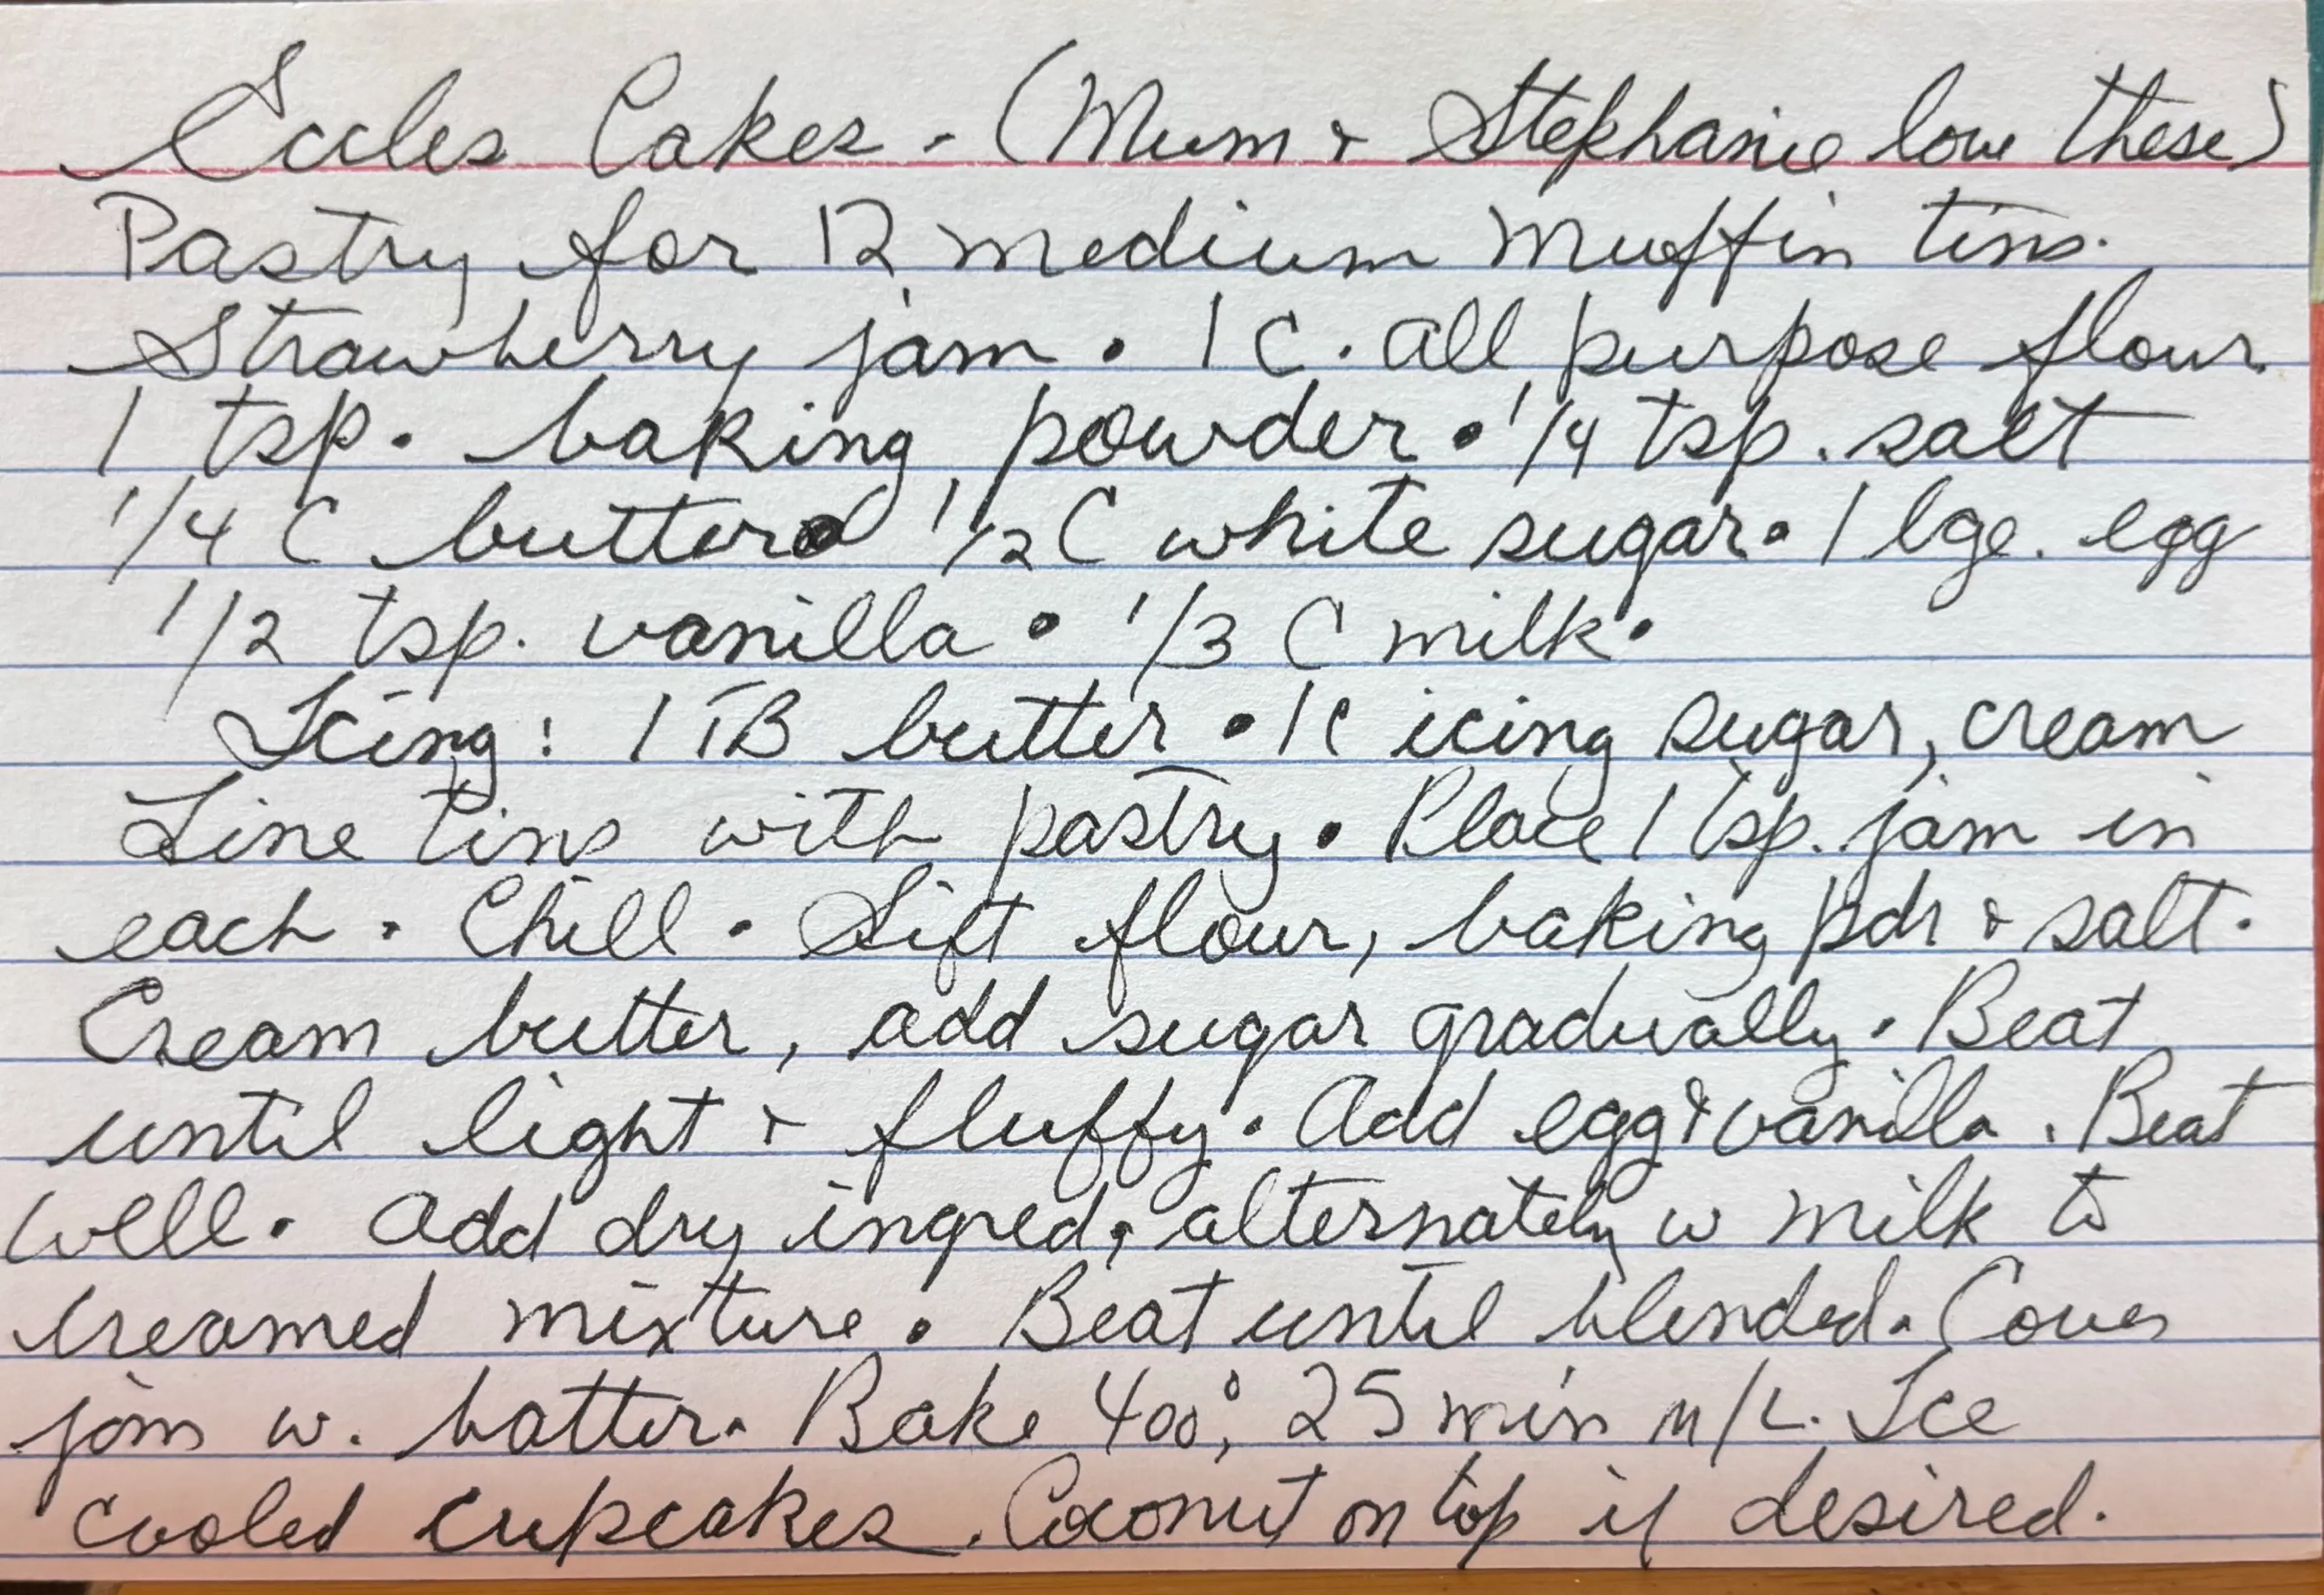 Eccles Cakes - (Mum & Stephanie love these)
Pastry for 12 medium muffin tins.
Strawberry jam • 1 C. all purpose flour
1 tsp. baking powder • 1/4 tsp. salt
1/4 C butter • 1/2 C white sugar • 1 lge. egg
1/2 tsp. vanilla • 1/3 C milk •
Icing: 1 TB butter • 1 C icing sugar, cream
Line tins with pastry. Place 1 tsp. jam in
each. Chill. Sift flour, baking pdr & salt.
Cream butter, add sugar gradually. Beat
until light & fluffy. Add egg & vanilla. Beat
well. Add dry ingred. alternately w milk to
creamed mixture. Beat until blended. Cover
jam w. batter. Bake 400°, 25 min m/L. Ice
cooled cupcakes. Coconut on top if desired.